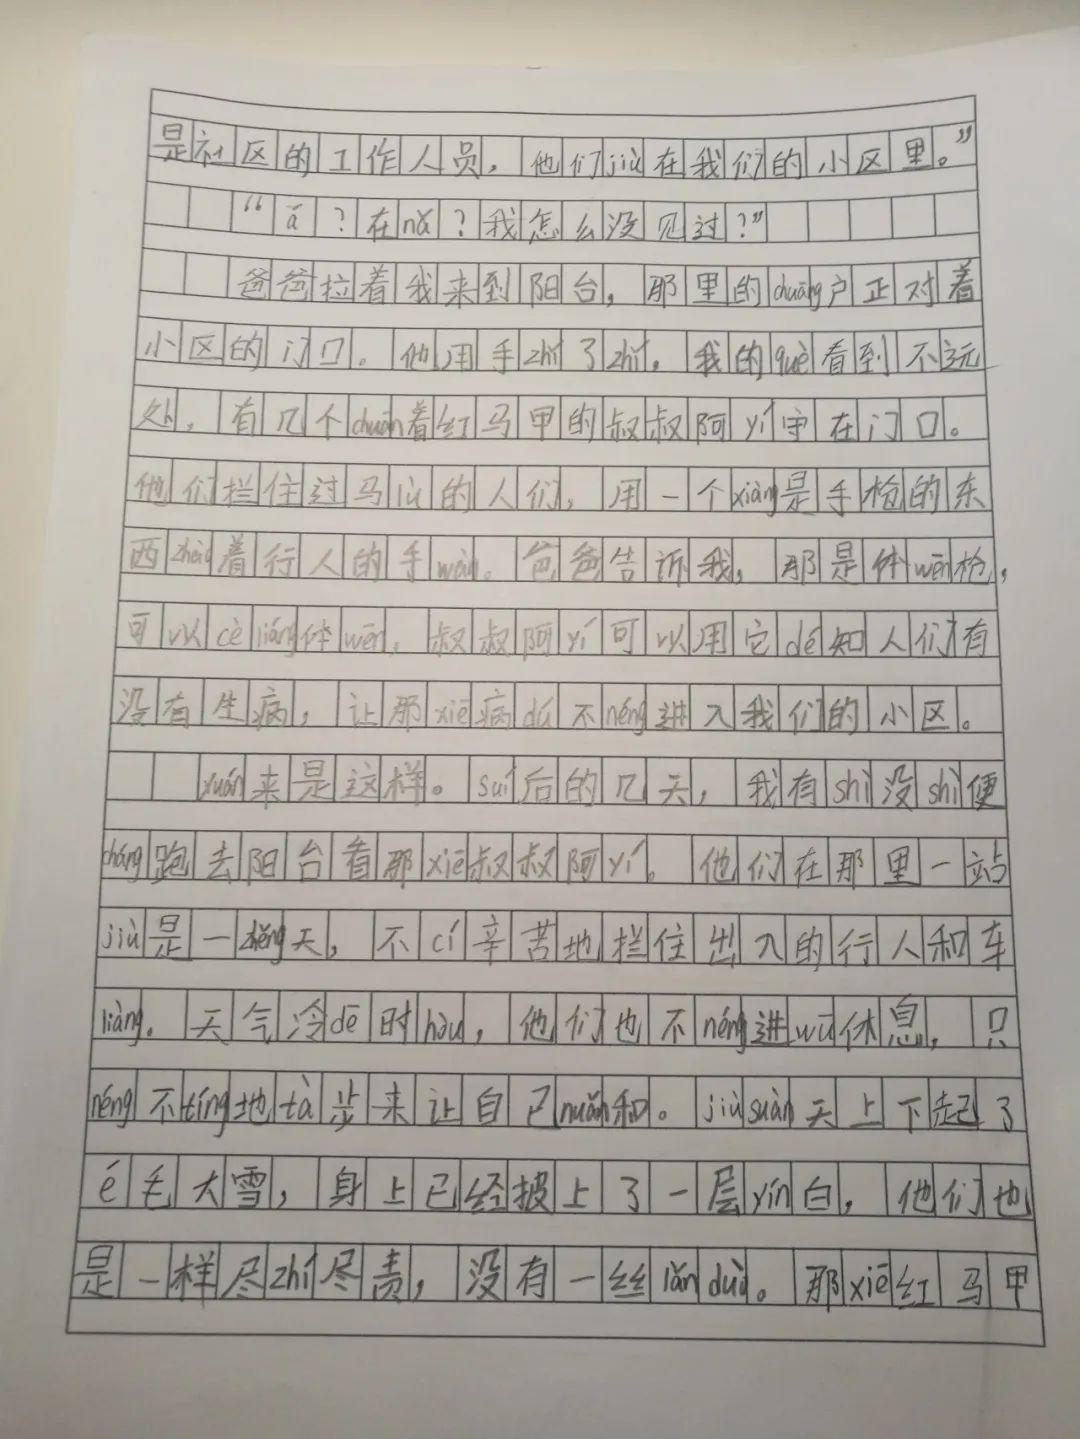 是社区的工作人员，他们jiù在我们的小区里。”
“ā？在nǎ？我怎么没见过？”
爸爸拉着我来到阳台，那里的chuāng户正对着
小区的门口。他用手zhǐ了zhǐ。我的què看到不远
处，有几个chuān着红马甲的叔叔阿yí守在门口。
他们拦住过马lù的人们，用一个xiàng是手枪的东
西zhào着行人的手wàn。爸爸告诉我，那是体wēn枪，
可以cè liáng体wēn，叔叔阿yí可以用它dé知人们有
没有生病，让那xiē病dú不néng进入我们的小区。
yuán来是这样。suí后的几天，我有shì没shì便
cháng跑去阳台看那xiē叔叔阿yí。他们在那里一站
jiù是一zhěng天，不cí辛苦地拦住出入的行人和车
liàng。天气冷dē时hòu，他们也不néng进wū休息，只
néng不tíng地tà步来让自己nuǎn和。jiù suàn天上下起了
é毛大雪，身上已经披上了一层yín白，他们也
是一样尽zhí尽责，没有一丝lǎn duò。那xiē红马甲